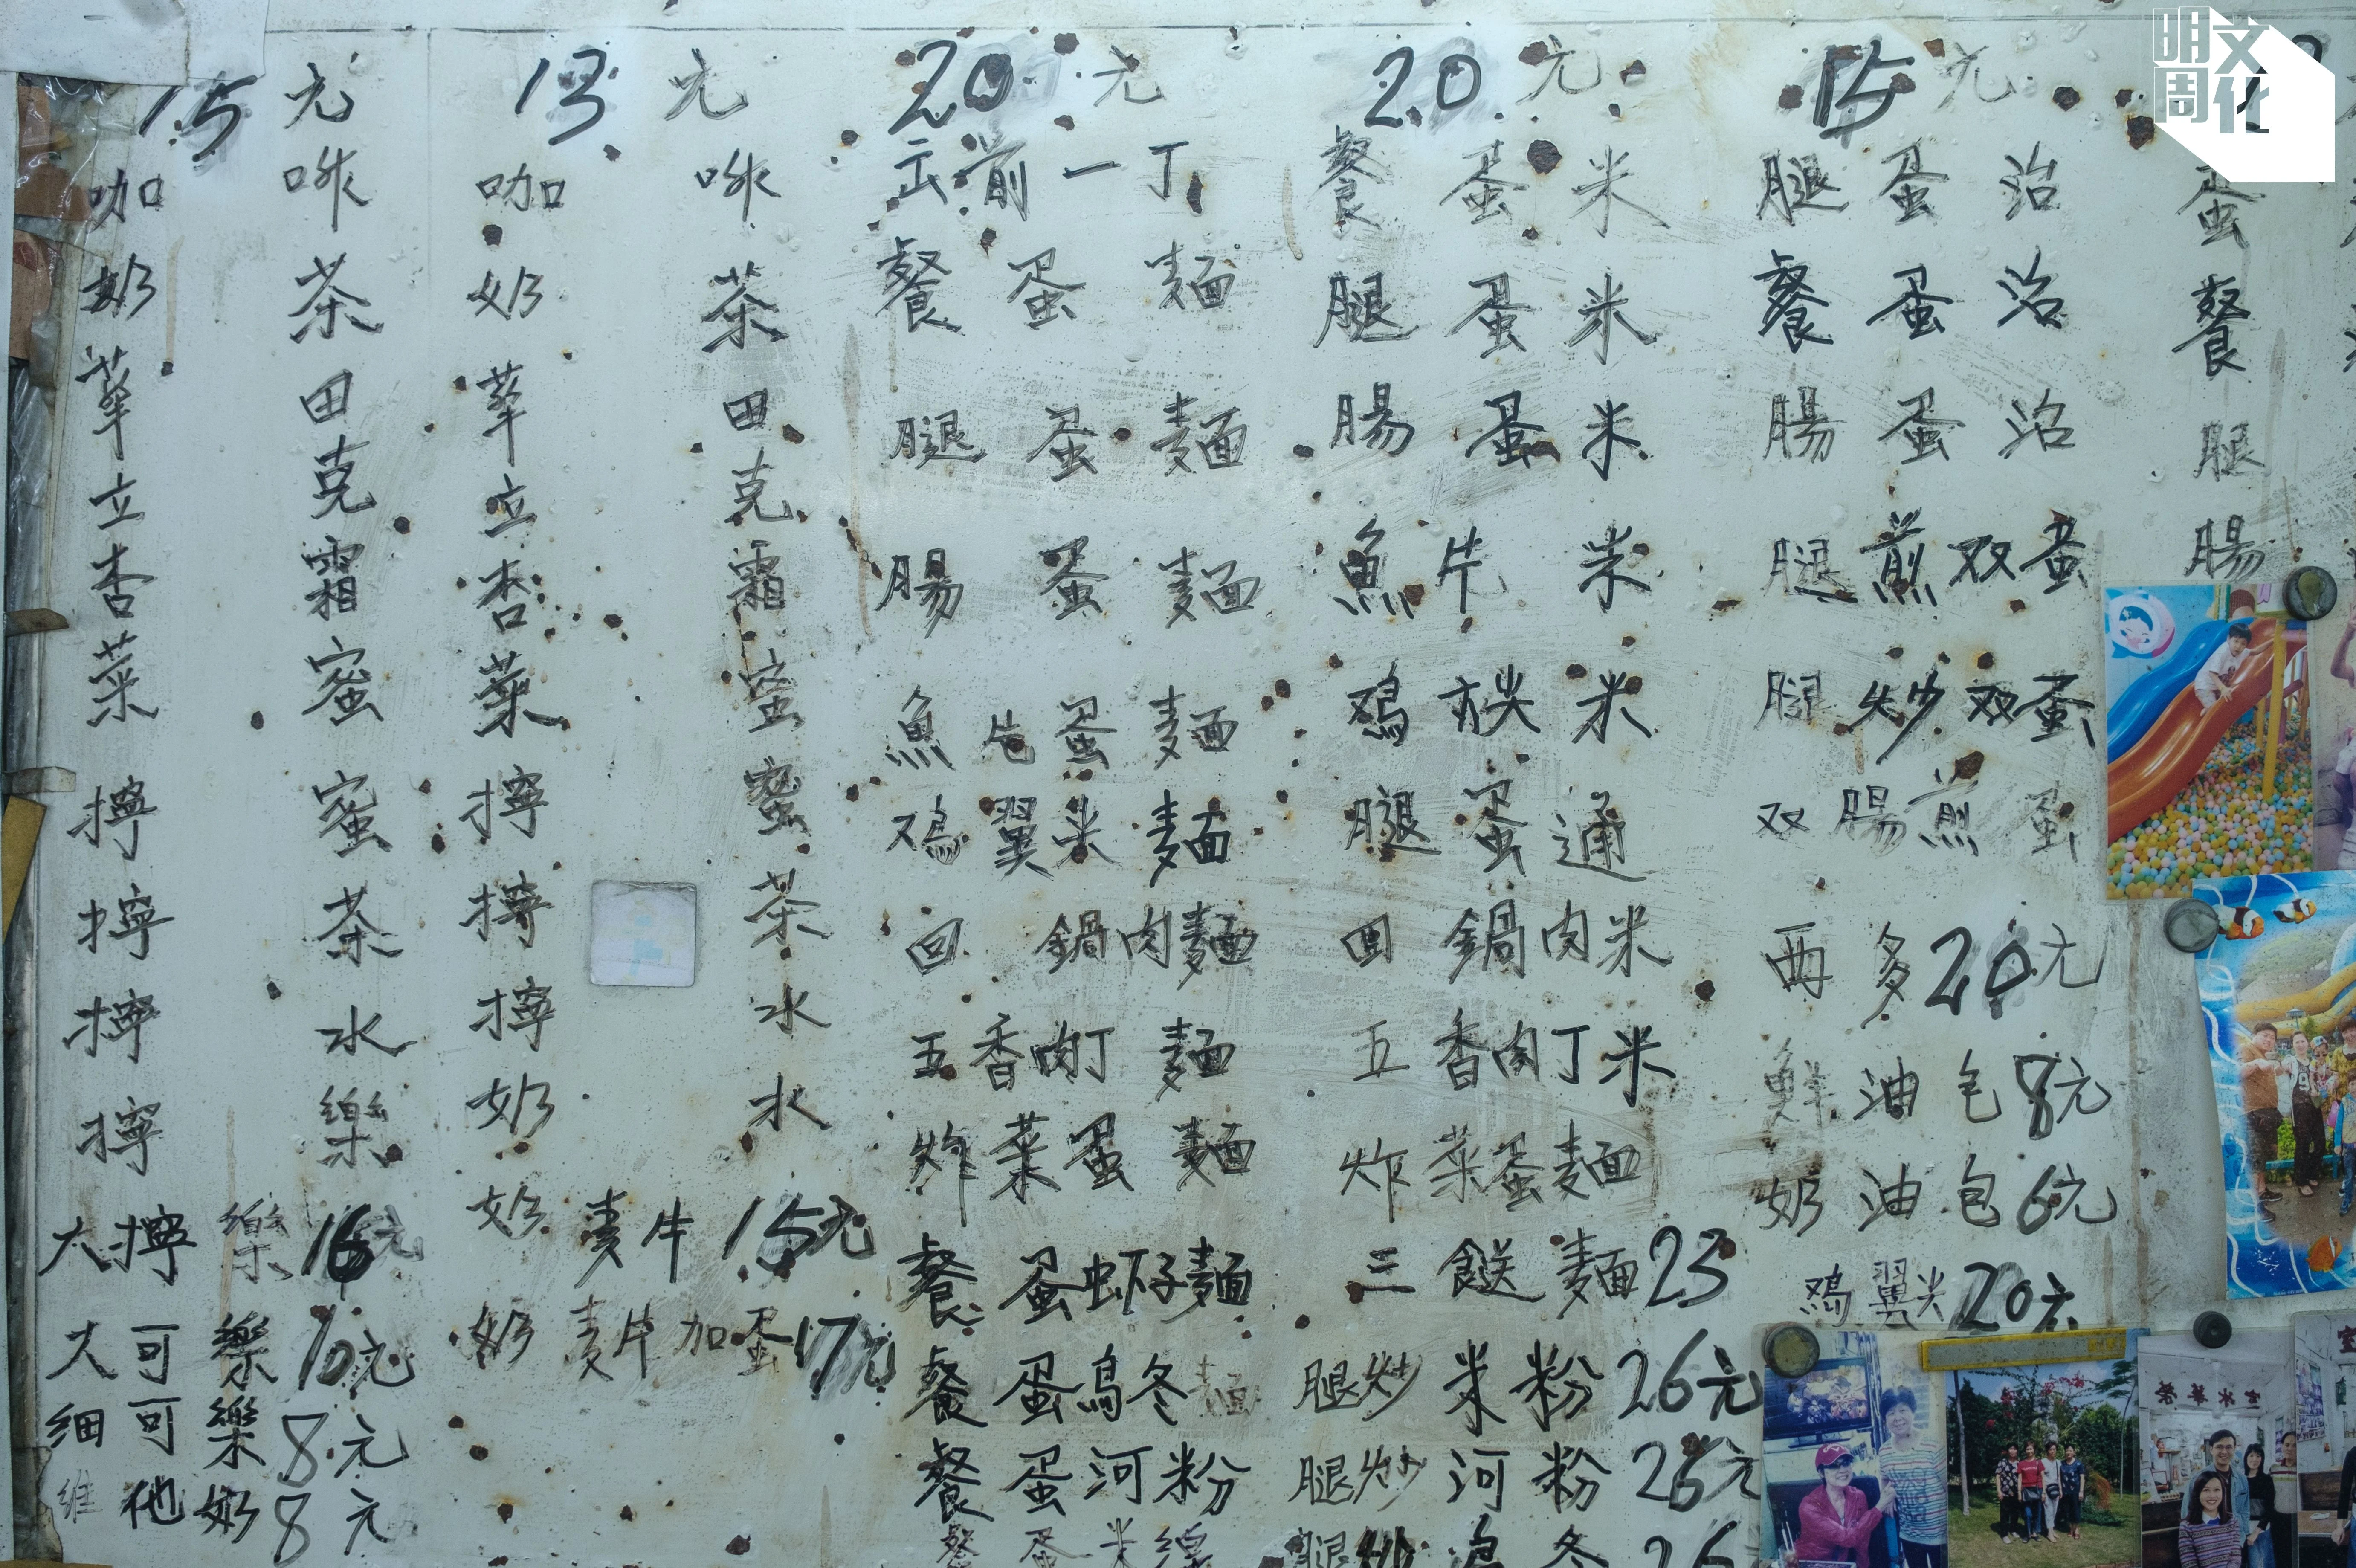 15元
咖 啡
奶 茶
華田
立克
杏霜
菜蜜
擰蜜
擰茶
擰水
擰樂
大擰樂16元
大可樂10元
細可樂8元
維他奶8元
13元
咖 啡
奶 茶
華田
立克
杏霜
菜蜜
擰蜜
擰茶
擰水
奶水
奶麦片15元
奶麦片加蛋17元
20元
出前一丁
餐蛋麵
腿蛋麵
腸蛋麵
魚片蛋麵
鸡翼米麵
回鍋肉麵
五香肉丁麵
炸菜蛋麵
餐蛋虾子麵
餐蛋烏冬麵
餐蛋河粉
餐蛋米線
20元
餐蛋米
腿蛋米
腸蛋米
魚片米
米
腿蛋通
回鍋肉米
五香肉丁米
炸菜蛋麵
三餸麵23
腿炒米粉26元
腿炒河粉26元
腿炒烏冬26
15元
腿蛋治
餐蛋治
腸蛋治
腿煎双蛋
腿炒双蛋
双腸煎蛋
西多20元
鮮油包8元
奶油包6元
鸡翼尖20元
蛋
餐
腿
腸
明周文化